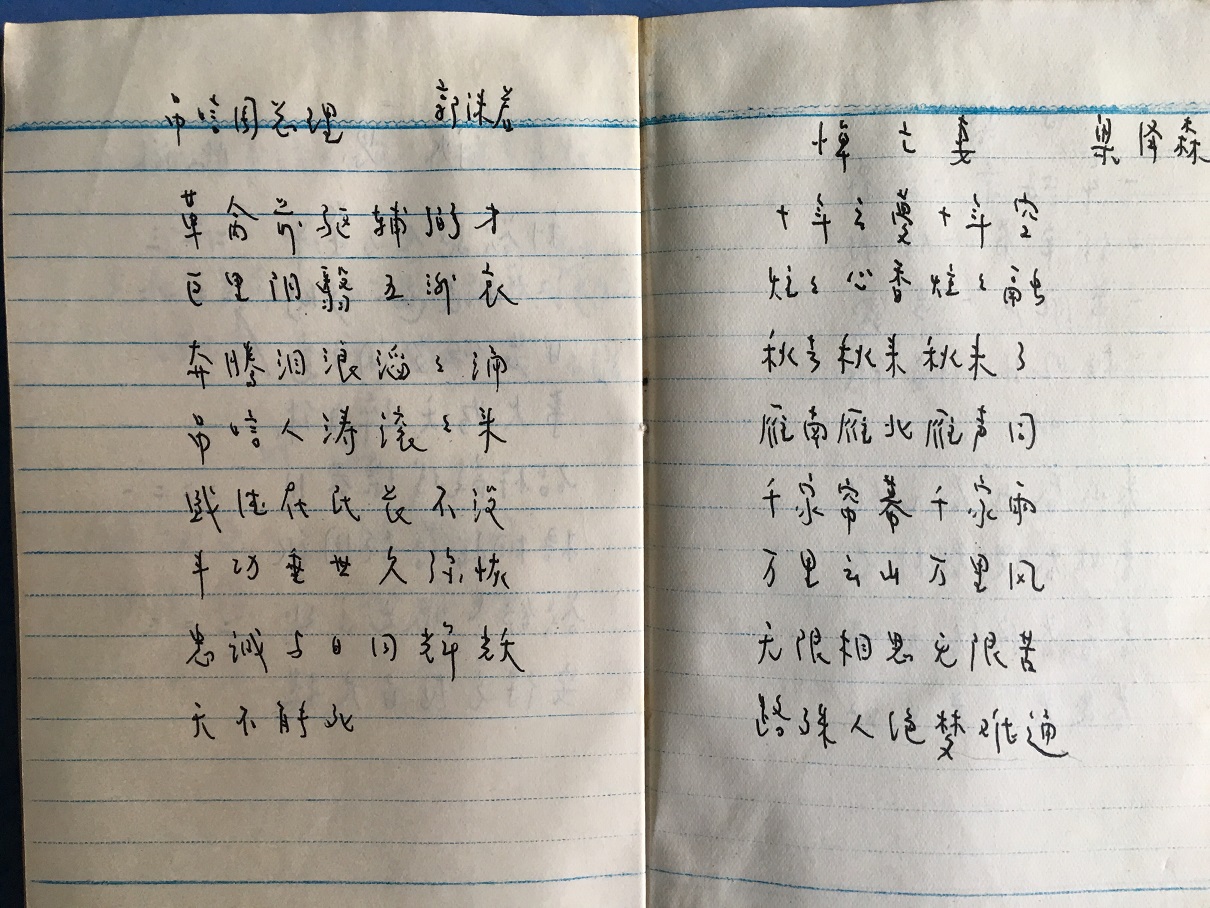 吊唁周总理 郭沫若
革命前驱辅弼才
巨星阴翳五洲哀
奔腾泪浪滔々涌
吊唁人涛滚々来
盛德在民长不没
丰功垂世久弥恢
忠诚与日同辉耀
天不能死
悼亡妻 梁泽森
十年之夢十年空
炷々心香炷々融
秋去秋来秋未了
雁南雁北雁声同
千家帘幕千家雨
万里云山万里风
无限相思无限苦
路殊人绝梦难通